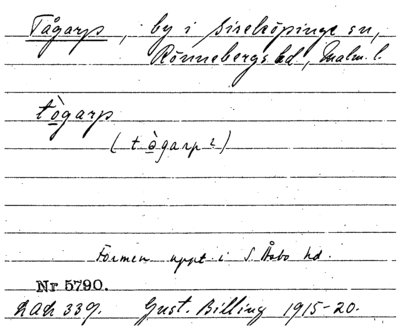 Tågarp, by i Sireköpinge sn,
Rönnebergs hd, Malm. l.
tògarp
(tògarp2)
Formen uppt. i S. Åsbo hd.
Nr 5790.
LAL 339. Gust. Billing 1915-20.